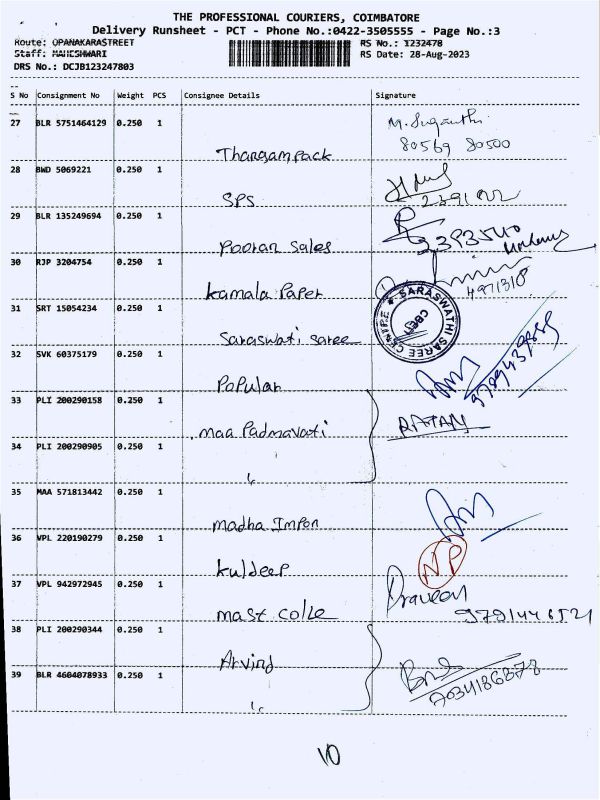 THE PROFESSIONAL COURIERS, COIMBATORE
Delivery Runsheet - PCT - Phone No.:0422-3505555 - Page No.:3
Route: OPANAKARASTREET RS No.: 1232478
Staff: MAHESHWARI RS Date: 28-Aug-2023
DRS No.: DCJB123247803
S No Consignment No Weight PCS Consignee Details Signature
27 BLR 5751464129 0.250 1 M. Suganthi
80569 80500
Thangampack
28 BWD 5069221 0.250 1
SPS 2391122
29 BLR 135249694 0.250 1
Pooran Sales 2393540
30 RJP 3204754 0.250 1
Kamala Paper 4971318
31 SRT 15054234 0.250 1 SARASWATHI SAREE CENTRE
CBE-1
Saraswati saree
32 SVK 60375179 0.250 1
Popular
33 PLI 200290158 0.250 1
maa Padmavati RATAN
34 PLI 200290905 0.250 1
35 MAA 571813442 0.250 1
madha Impon
36 VPL 220190279 0.250 1 NP
kuldeep
37 VPL 942972945 0.250 1 Praveen
mast colle 9791446521
38 PLI 200290344 0.250 1
Arvind
39 BLR 4604078933 0.250 1 7034186878
10